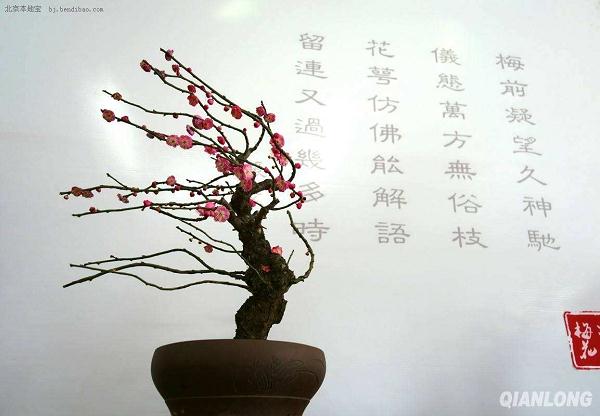 北京本地宝 bj.bendibao.com
梅前凝望久神馳
儀態萬方無俗枝
花萼仿佛能解語
留連又過幾多時
梅花
QIANLONG